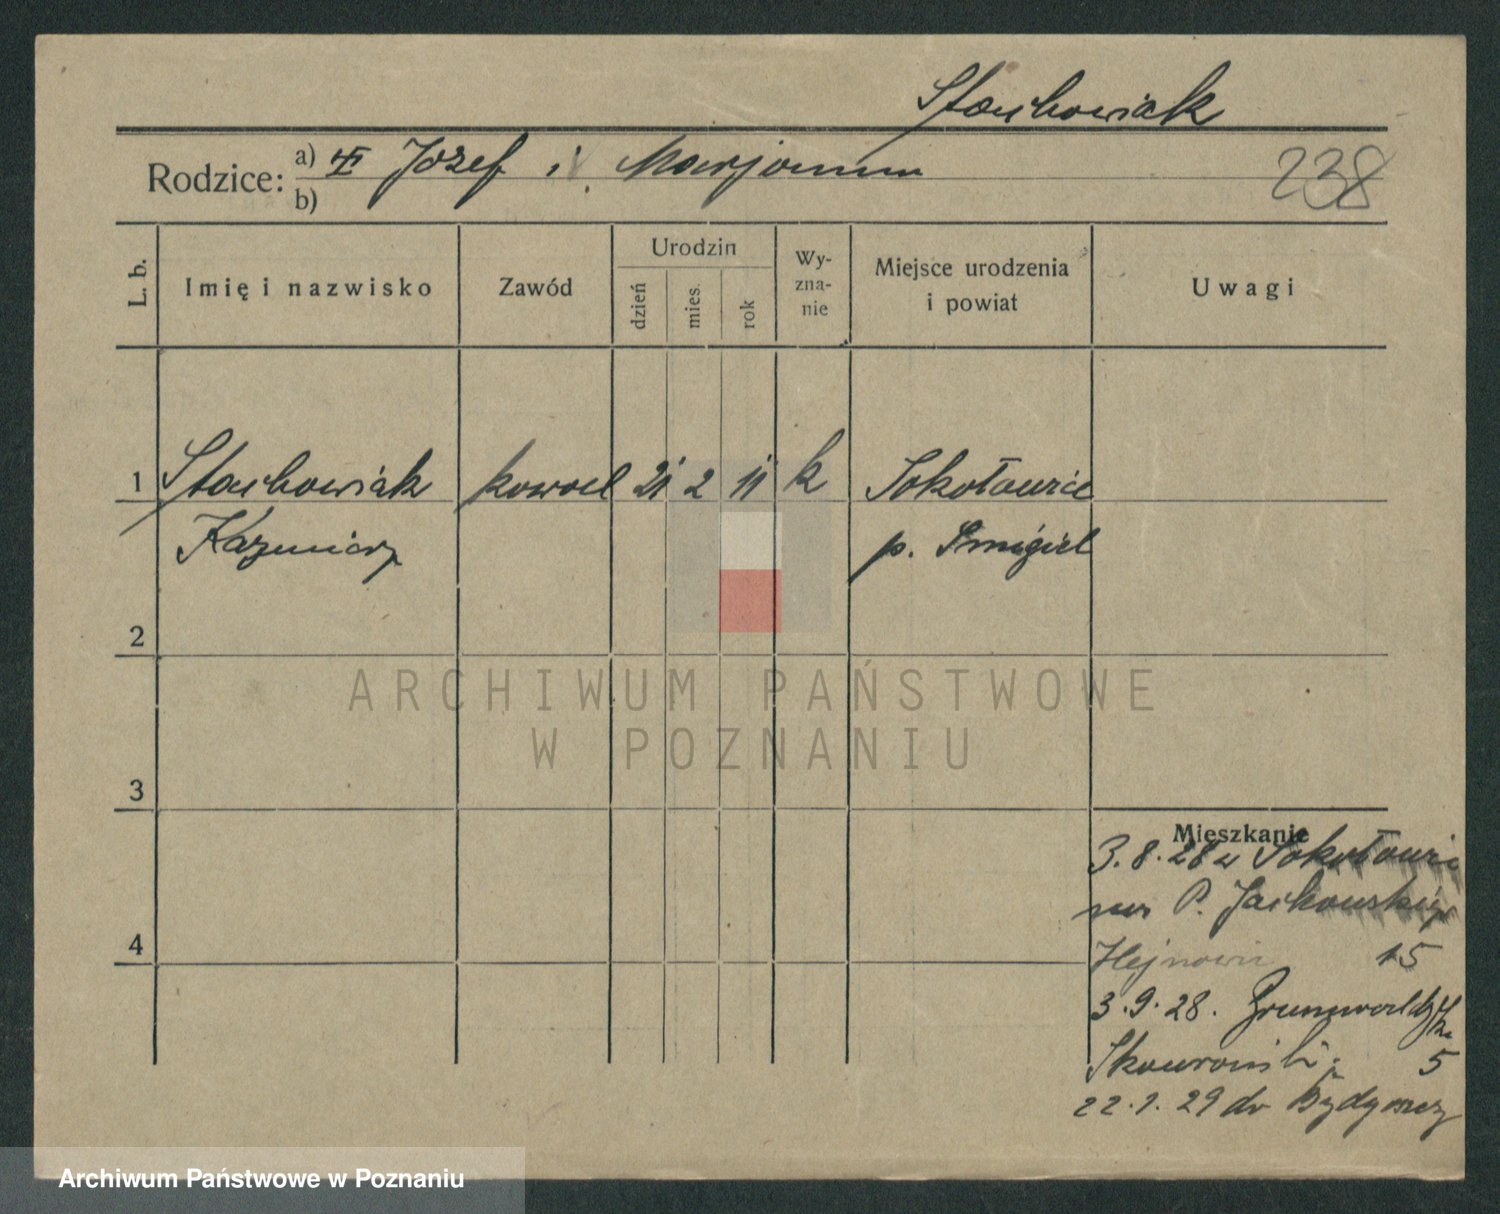 Stachowiak
Rodzice: a) Józef i Marjanna
b)
238
L. b.
Imię i nazwisko
Zawód
Urodzin
dzień
mies.
rok
Wy-
zna-
nie
Miejsce urodzenia
i powiat
Uwagi
1 Stachowiak kowal 21 2 11 k Sokołowice
Kazimierz p. Śmigiel
2
ARCHIWUM PAŃSTWOWE
W POZNANIU
3
Mieszkanie
3.8.28 z Sokołowic
P. Jackowskiego
15
4
3.9.28. Grunwaldzka
5
22.1.29 do Bydgoszczy
Archiwum Państwowe w Poznaniu